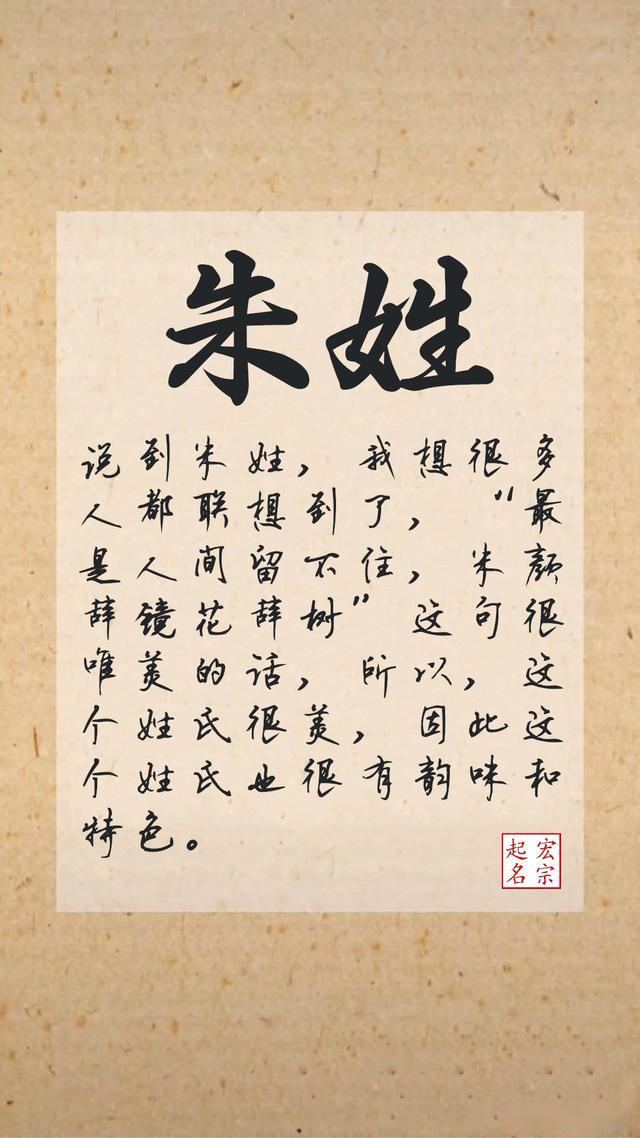 朱姓
说到朱姓，我想很多
人都联想到了，“最
是人间留不住，朱颜
辞镜花辞树”这句很
唯美的话，所以，这
个姓氏很美，因此这
个姓氏也很有韵味和
特色。
宏宗
起名